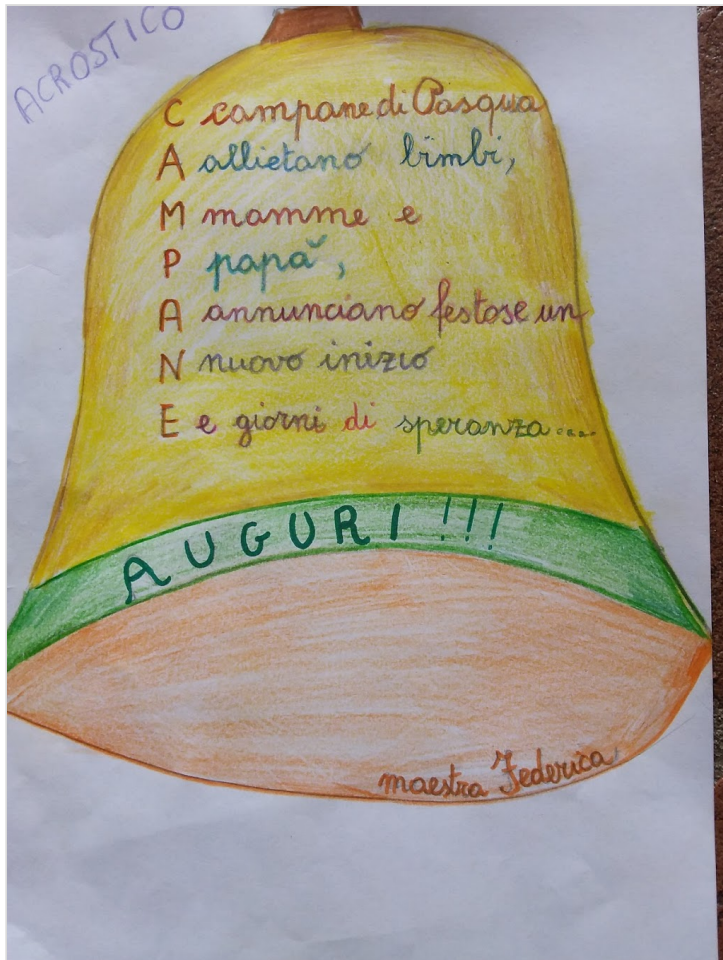 ACROSTICO
C campane di Pasqua
A allietano bimbi,
M mamme e
P papà,
A annunciano festose un
N nuovo inizio
E e giorni di speranza...
AUGURI!!!
maestra Federica